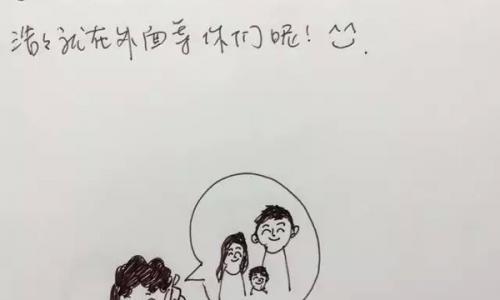 浩浩就在外面等你们呢！^^.